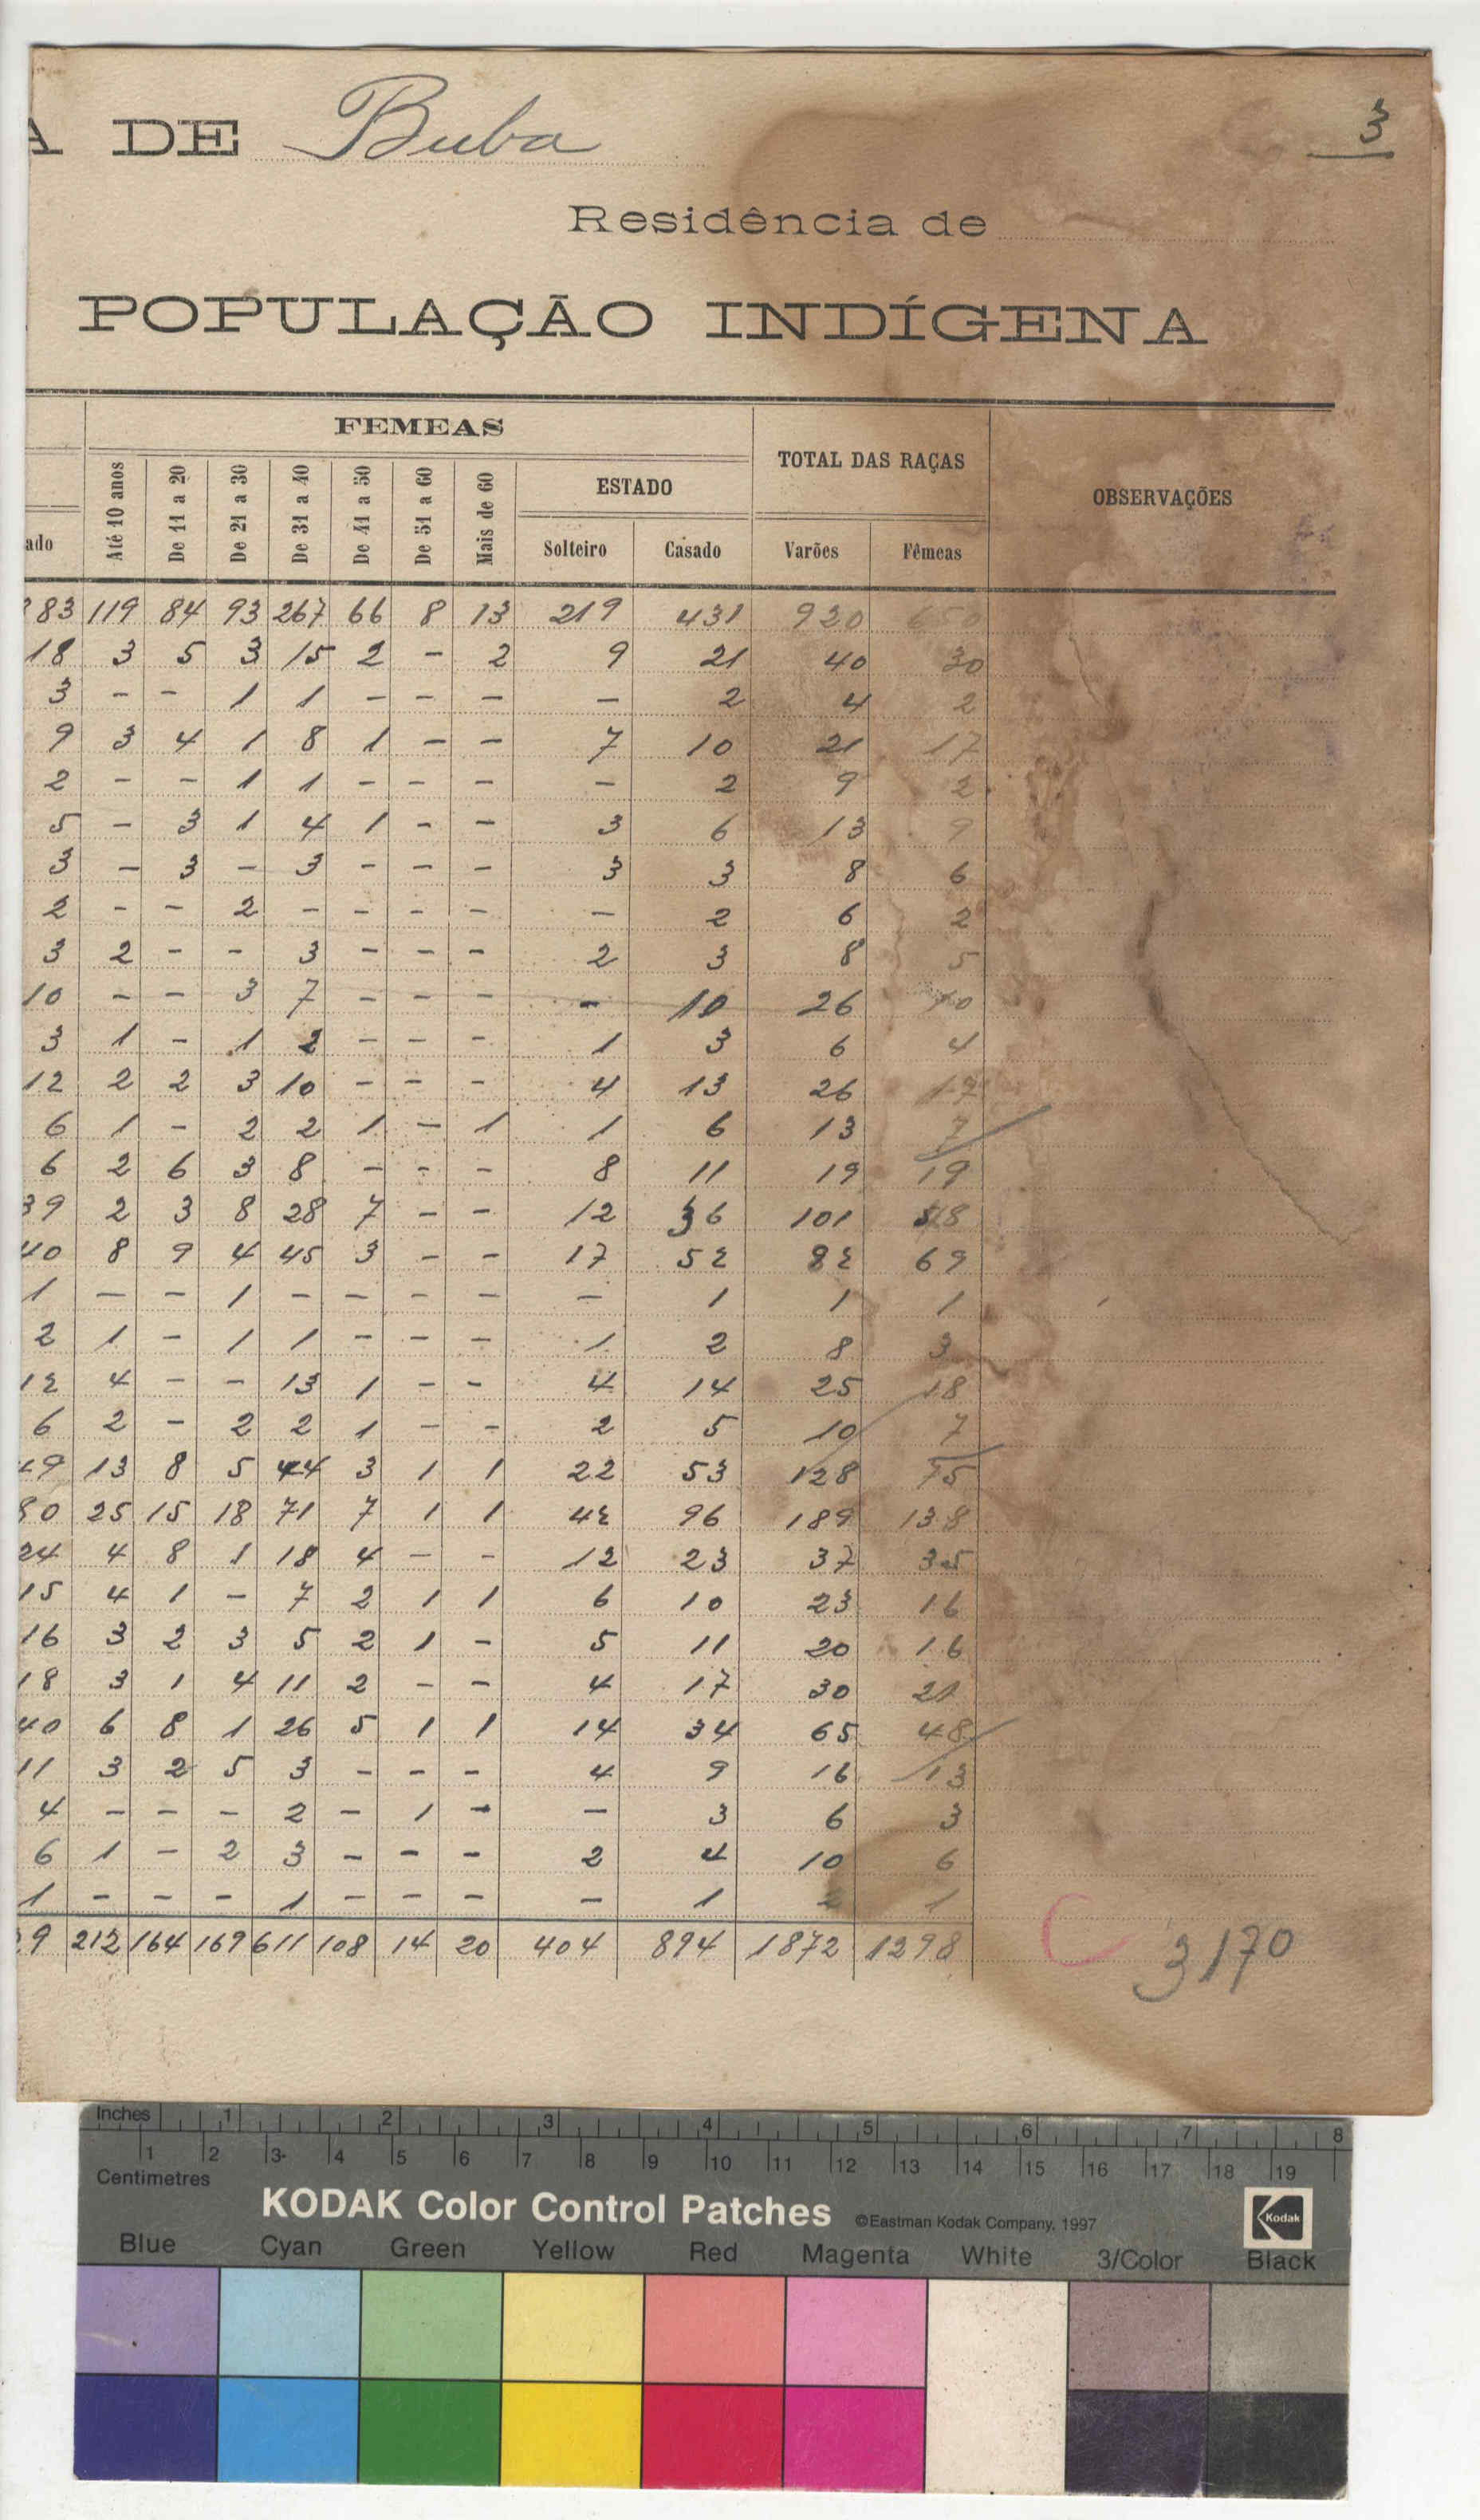 A DE Buba
3
Residência de
POPULAÇÃO INDÍGENA
FEMEAS
TOTAL DAS RAÇAS
OBSERVAÇÕES
ESTADO
ado Até 10 anos De 11 a 20 De 21 a 30 De 31 a 40 De 41 a 50 De 51 a 60 Mais de 60 Solteiro Casado Varões Fêmeas
383 119 84 93 267 66 8 13 219 431 920 650
18 3 5 3 15 2 - 2 9 21 40 30
3 - - 1 1 - - - - 2 4 2
9 3 4 1 8 1 - - 7 10 21 17
2 - - 1 1 - - - - 2 9 2
5 - 3 1 4 1 - - 3 6 13 9
3 - 3 - 3 - - - 3 3 8 6
2 - - 2 - - - - - 2 6 2
3 2 - - 3 - - - 2 3 8 5
10 - - 3 7 - - - - 10 26 10
3 1 - 1 2 - - - 1 3 6 4
12 2 2 3 10 - - - 4 13 26 17
6 1 - 2 2 1 - 1 1 6 13 7
6 2 6 3 8 - - - 8 11 19 19
39 2 3 8 28 7 - - 12 36 101 48
40 8 9 4 45 3 - - 17 52 82 69
1 - - 1 - - - - - 1 1 1
2 1 - 1 1 - - - 1 2 8 3
12 4 - - 13 1 - - 4 14 25 18
6 2 - 2 2 1 - - 2 5 10 7
49 13 8 5 44 3 1 1 22 53 128 75
80 25 15 18 71 7 1 1 42 96 189 138
24 4 8 1 18 4 - - 12 23 37 35
15 4 1 - 7 2 1 1 6 10 23 16
16 3 2 3 5 2 1 - 5 11 20 16
18 3 1 4 11 2 - - 4 17 30 21
40 6 8 1 26 5 1 1 14 34 65 48
11 3 2 5 3 - - - 4 9 16 13
4 - - - 2 - 1 - - 3 6 3
6 1 - 2 3 - - - 2 4 10 6
1 - - - 1 - - - - 1 2 1
9 212 164 169 611 108 14 20 404 894 1872 1298
C 3170
Inches 1 2 3 4 5 6 7 8
Centimetres 1 2 3 4 5 6 7 8 9 10 11 12 13 14 15 16 17 18 19
KODAK Color Control Patches ©Eastman Kodak Company, 1997 Kodak
Blue Cyan Green Yellow Red Magenta White 3/Color Black